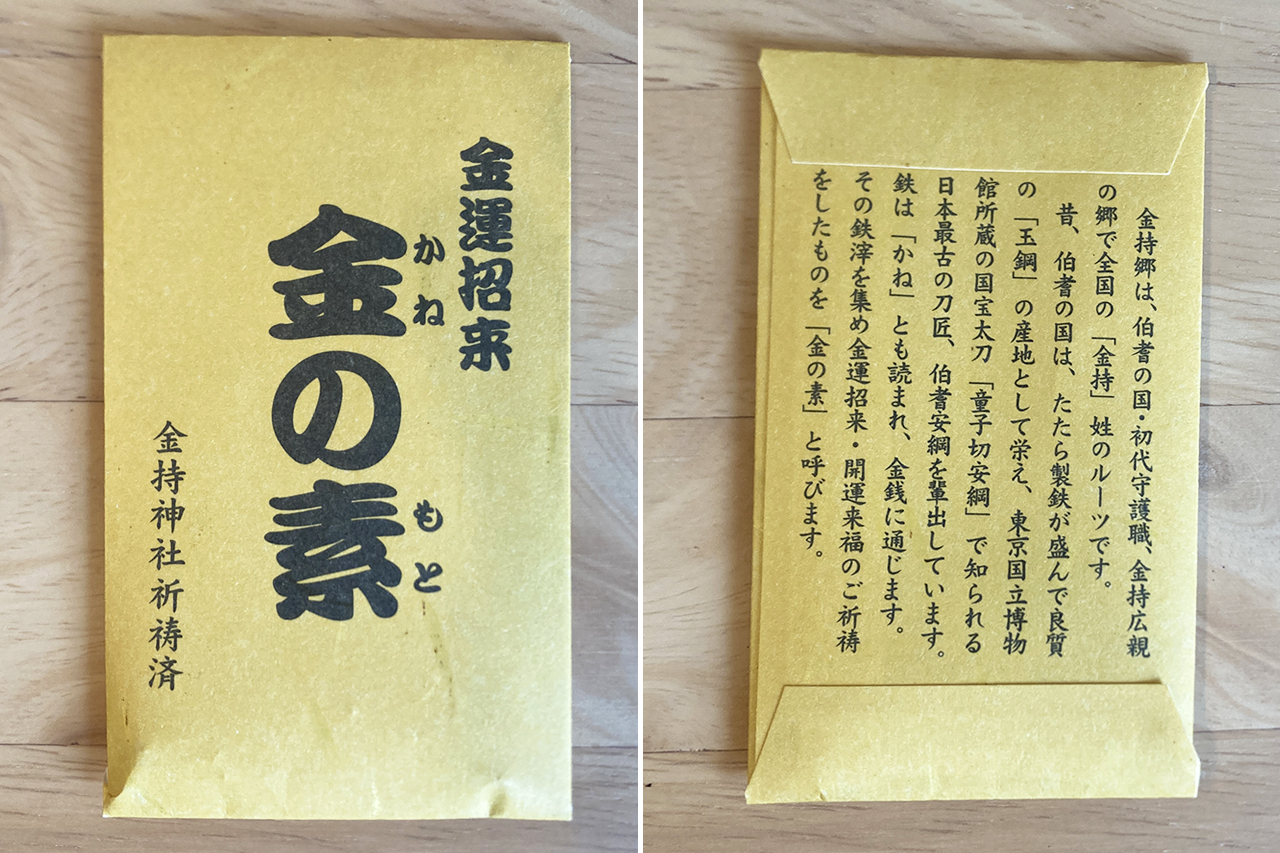 金運招来
かね
もと
金の素
金持神社祈祷済
金持郷は、伯耆の国・初代守護職、金持広親
の郷で全国の「金持」姓のルーツです。
昔、伯耆の国は、たたら製鉄が盛んで良質
の「玉鋼」の産地として栄え、東京国立博物
館所蔵の国宝太刀「童子切安綱」で知られる
日本最古の刀匠、伯耆安綱を輩出しています。
鉄は「かね」とも読まれ、金銭に通じます。
その鉄滓を集め金運招来・開運来福のご祈祷
をしたものを「金の素」と呼びます。